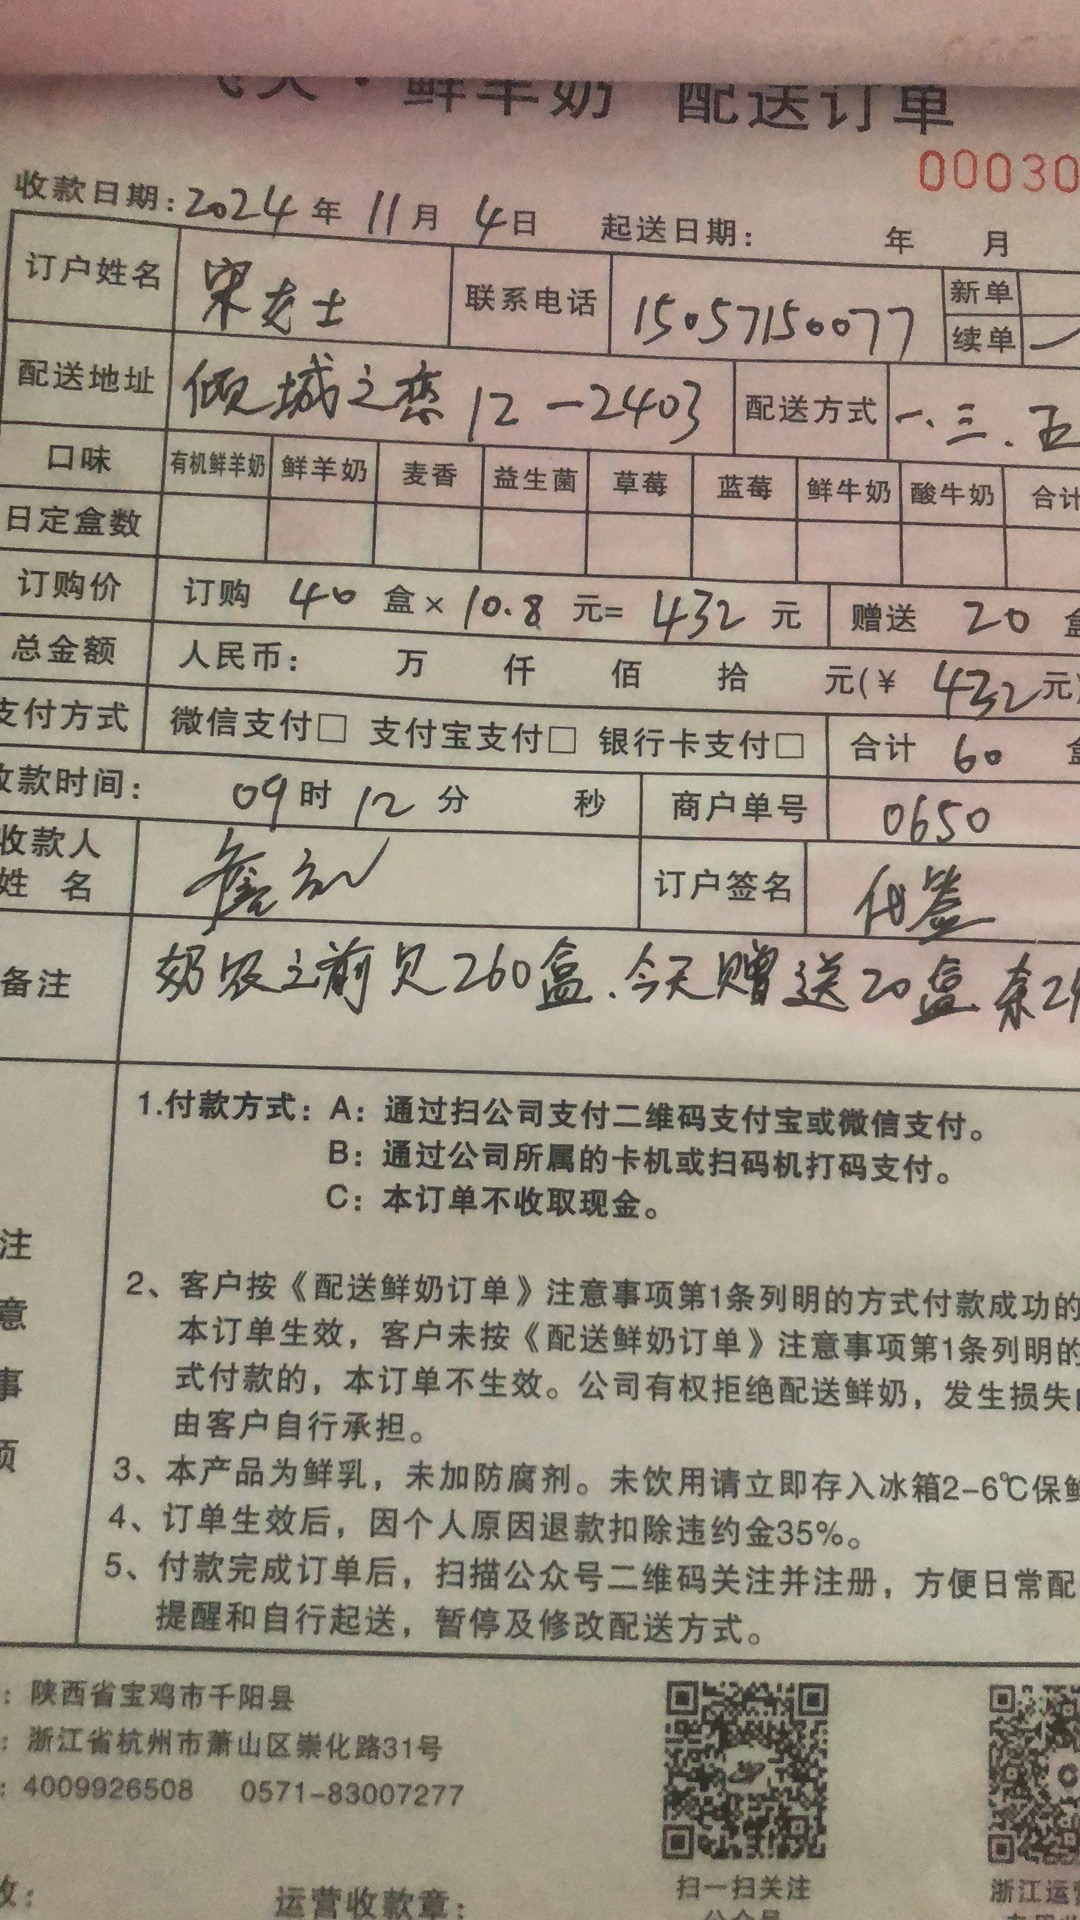 ·鲜羊奶 配送订单
00030
收款日期:2024年 11月 4日 起送日期: 年 月
订户姓名 宋女士 联系电话 15057150077 新单
续单
配送地址 倾城之恋 12-2403 配送方式 一、三、五
口味 有机鲜羊奶 鲜羊奶 麦香 益生菌 草莓 蓝莓 鲜牛奶 酸牛奶 合计
日定盒数
订购价 订购 40 盒× 10.8 元= 432 元 赠送 20 盒
总金额 人民币: 万 仟 佰 拾 元(¥ 432元)
支付方式 微信支付□ 支付宝支付□ 银行卡支付□ 合计 60 盒
收款时间: 09时 12分 秒 商户单号 0650
收款人
姓 名 订户签名 代签
备注 奶农之前欠260盒.今天赠送20盒.余24
1.付款方式:A:通过扫公司支付二维码支付宝或微信支付。
B:通过公司所属的卡机或扫码机打码支付。
C:本订单不收取现金。
注意事项
2、客户按《配送鲜奶订单》注意事项第1条列明的方式付款成功的
本订单生效,客户未按《配送鲜奶订单》注意事项第1条列明的
式付款的,本订单不生效。公司有权拒绝配送鲜奶,发生损失由
由客户自行承担。
3、本产品为鲜乳,未加防腐剂。未饮用请立即存入冰箱2-6℃保鲜
4、订单生效后,因个人原因退款扣除违约金35%。
5、付款完成订单后,扫描公众号二维码关注并注册,方便日常配
提醒和自行起送,暂停及修改配送方式。
:陕西省宝鸡市千阳县
:浙江省杭州市萧山区崇化路31号
:4009926508 0571-83007277
扫一扫关注 浙江运营
公众号
收: 运营收款章: